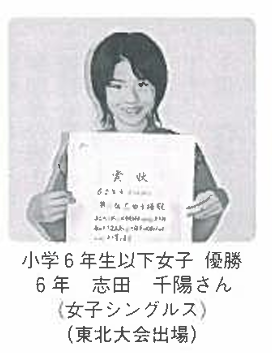 賞状
小学6年生以下女子 優勝
6年 志田 千陽さん
(女子シングルス)
(東北大会出場)